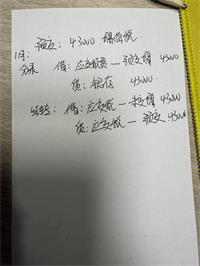 预交：43000 增值税
1月：
分录 借：应交税费—预交增 43000
贷：银存 43000
结转：借：应交税—未交增 43000
贷：应交税—预交 43000